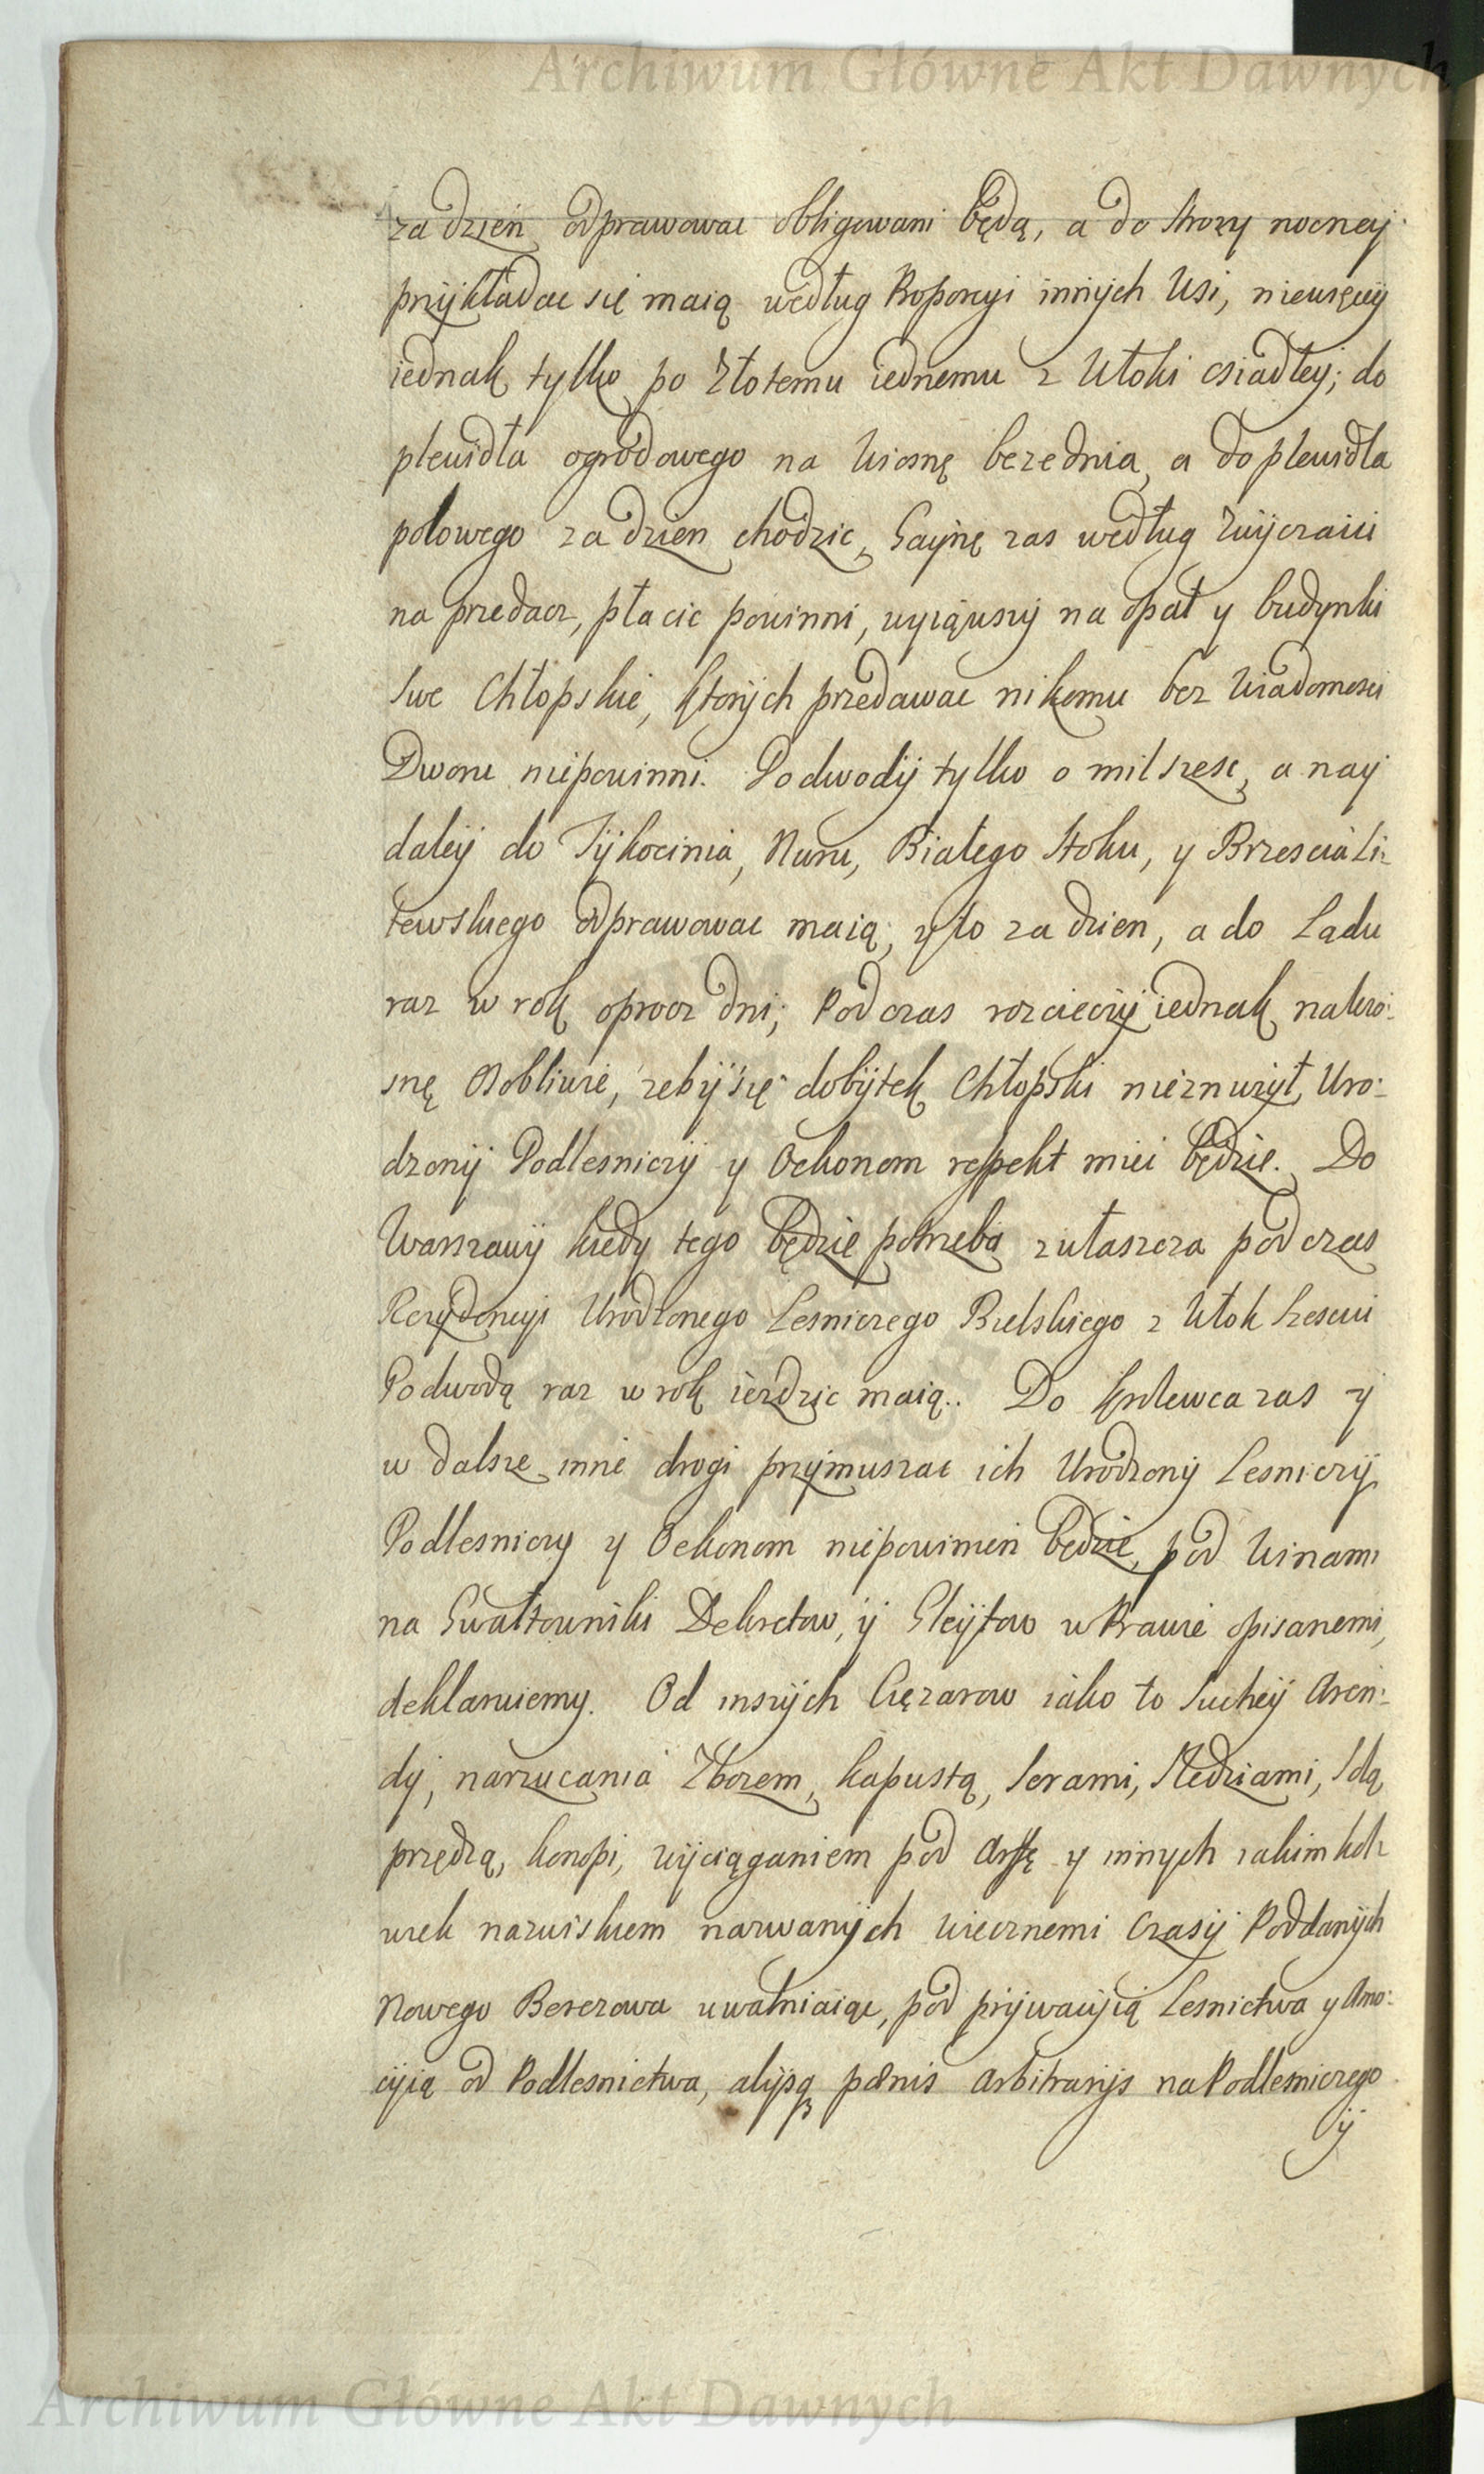 Archiwum Główne Akt Dawnych
za dzień odprawowac obligowani będą, a do Strozy nocney
przykładac się maią według Proporcyi innych Wsi, niewięcey
iednak tylko po Złotemu iednemu z Włoki osiadłey; do
plewidła ogrodowego na Wiosnę beze dnia, a do plewidła
polowego za dzien chodzic, Gaynę zas według Zwyczaiu
na przedacz, płacic powinni, wyiąwszy na opał y budynki
Swe Chłopskie, ktorych przedawac nikomu bez Wiadomosci
Dworu niepowinni. Podwody tylko o mil szesc, a nay
daley do Tykocinia, Nuru, Białego Stoku, y Brzescia Li-
tewskiego odprawowac maią, y to za dzien, a do Lądu
raz w rok oprocz dni; Podczas rozcieczy iednak nawio-
snę osobliwie, zeby się dobytek Chłopski nieznużył, Uro-
dzony Podlesniczy y Oekonom respekt miec będzie. Do
Warszawy kiedy tego będzie potrzeba zwłaszcza podczas
Rezydencyi Urodzonego Lesniczego Bielskiego z Włok Szesciu
Podwodą raz w rok iezdzic maią.. Do Krolewca zas y
w dalsze inne drogi przymuszac ich Urodzony Lesniczy,
Podlesniczy y Oekonom niepowinien będzie, pod Winami
na Gwałtowniki Dekretow, y Gleytow w Prawie opisanemi,
deklaruiemy. Od inszych Ciężarow iako to Suchey Aren-
dy, narzucania Zbozem, kapustą, Serami, Sledziami, Solą
przędzą, konopi, wyciąganiem pod Arsztę y innych iakimkol-
wiek nazwiskiem nazwanych wiecznemi Czasy Poddanych
Nowego Berezowa uwalniaiąc, pod prywacyią Lesnictwa y Amo-
cyią od Podlesnictwa, alysq paenis arbitrarys na Podlesniczego
y
Archiwum Główne Akt Dawnych